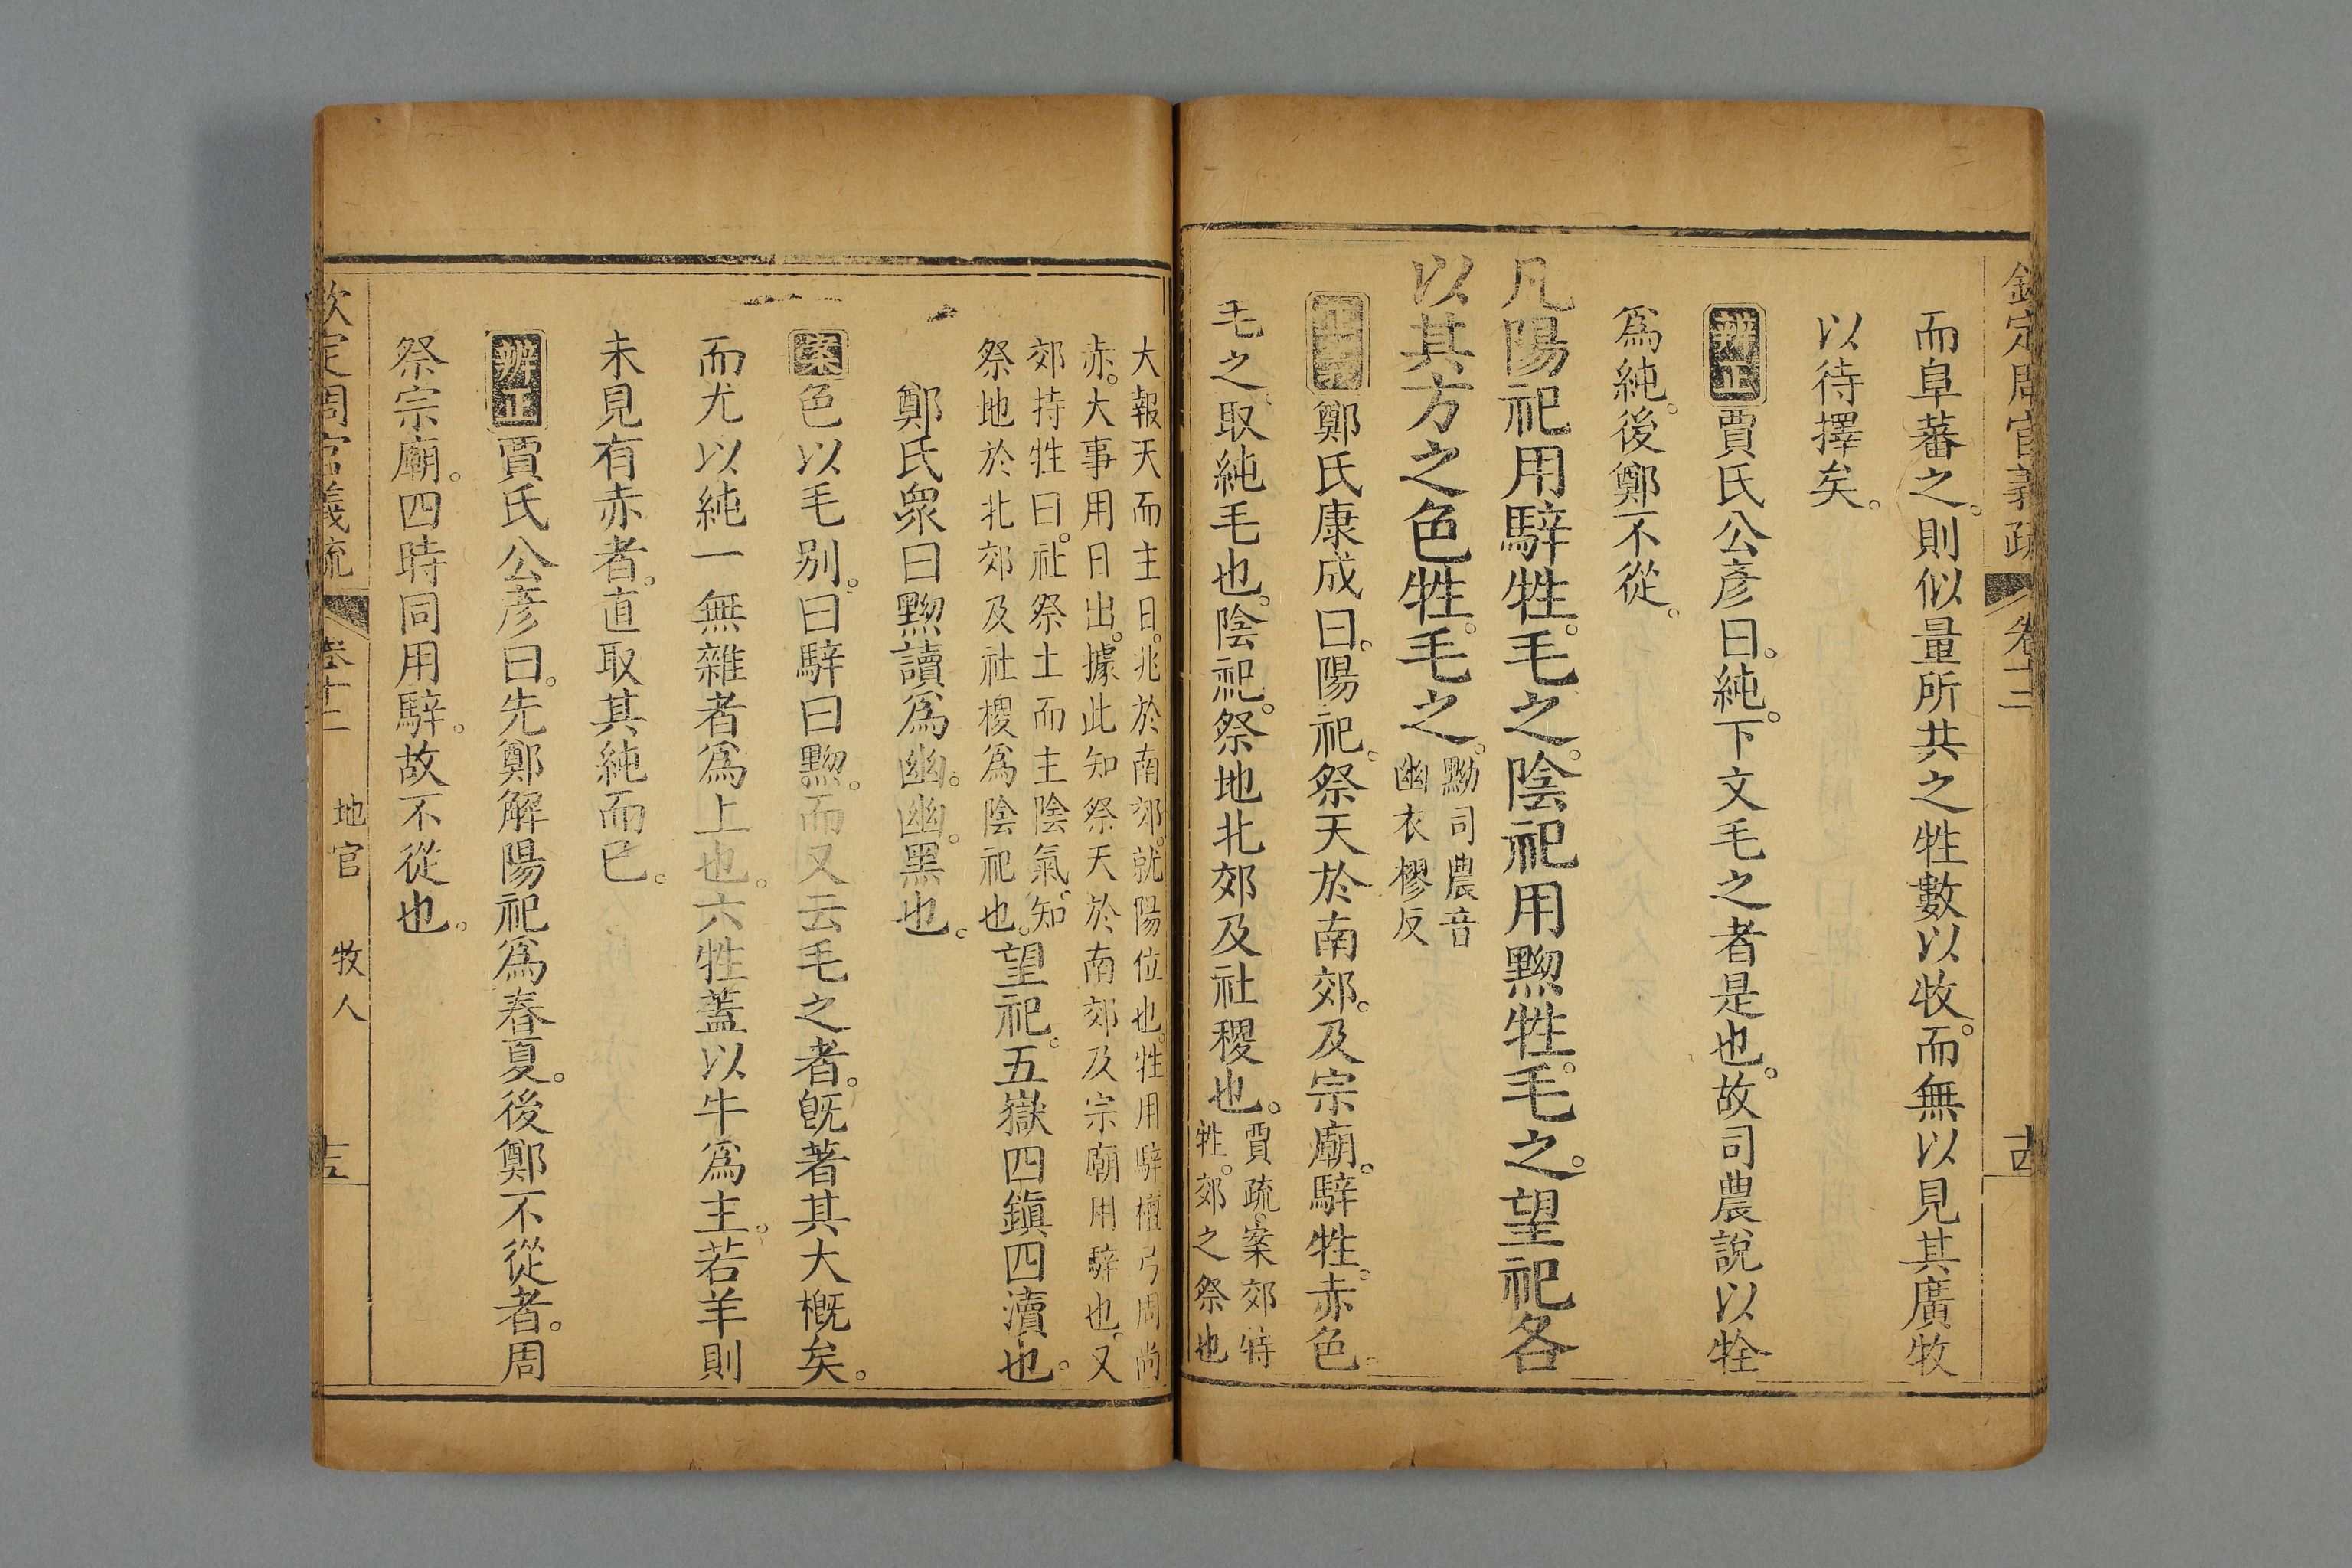 欽定周官義疏 卷十二 十四
而阜蕃之。則似量所共之牲數以牧。而無以見其廣牧
以待擇矣。
辨正 賈氏公彥曰。純。下文毛之者是也。故司農說以牷
為純。後鄭不從。
凡陽祀用騂牲。毛之。陰祀用黝牲。毛之。望祀各
以其方之色牲。毛之。
黝司農音
幽衣樛反
正義 鄭氏康成曰。陽祀。祭天於南郊。及宗廟。騂牲。赤色。
毛之。取純毛也。陰祀。祭地北郊及社稷也。
賈疏。案郊特
牲。郊之祭也
大報天而主日。兆於南郊。就陽位也。牲用騂檀弓周尚
赤。大事用日出。據此知祭天於南郊及宗廟用騂也。又
郊特牲曰。社祭土而主陰氣。知
祭地於北郊及社稷為陰祀也。
望祀。五嶽四鎮四瀆也。
鄭氏眾曰黝讀為幽。幽。黑也。
案 色以毛別。曰騂曰黝。而又云毛之者。既著其大概矣。
而尤以純一無雜者為上也。六牲蓋以牛為主。若羊則
未見有赤者。直取其純而已。
辨正 賈氏公彥曰。先鄭解陽祀為春夏。後鄭不從者。周
祭宗廟。四時同用騂。故不從也。
欽定周官義疏 卷十二 地官 牧人 十五